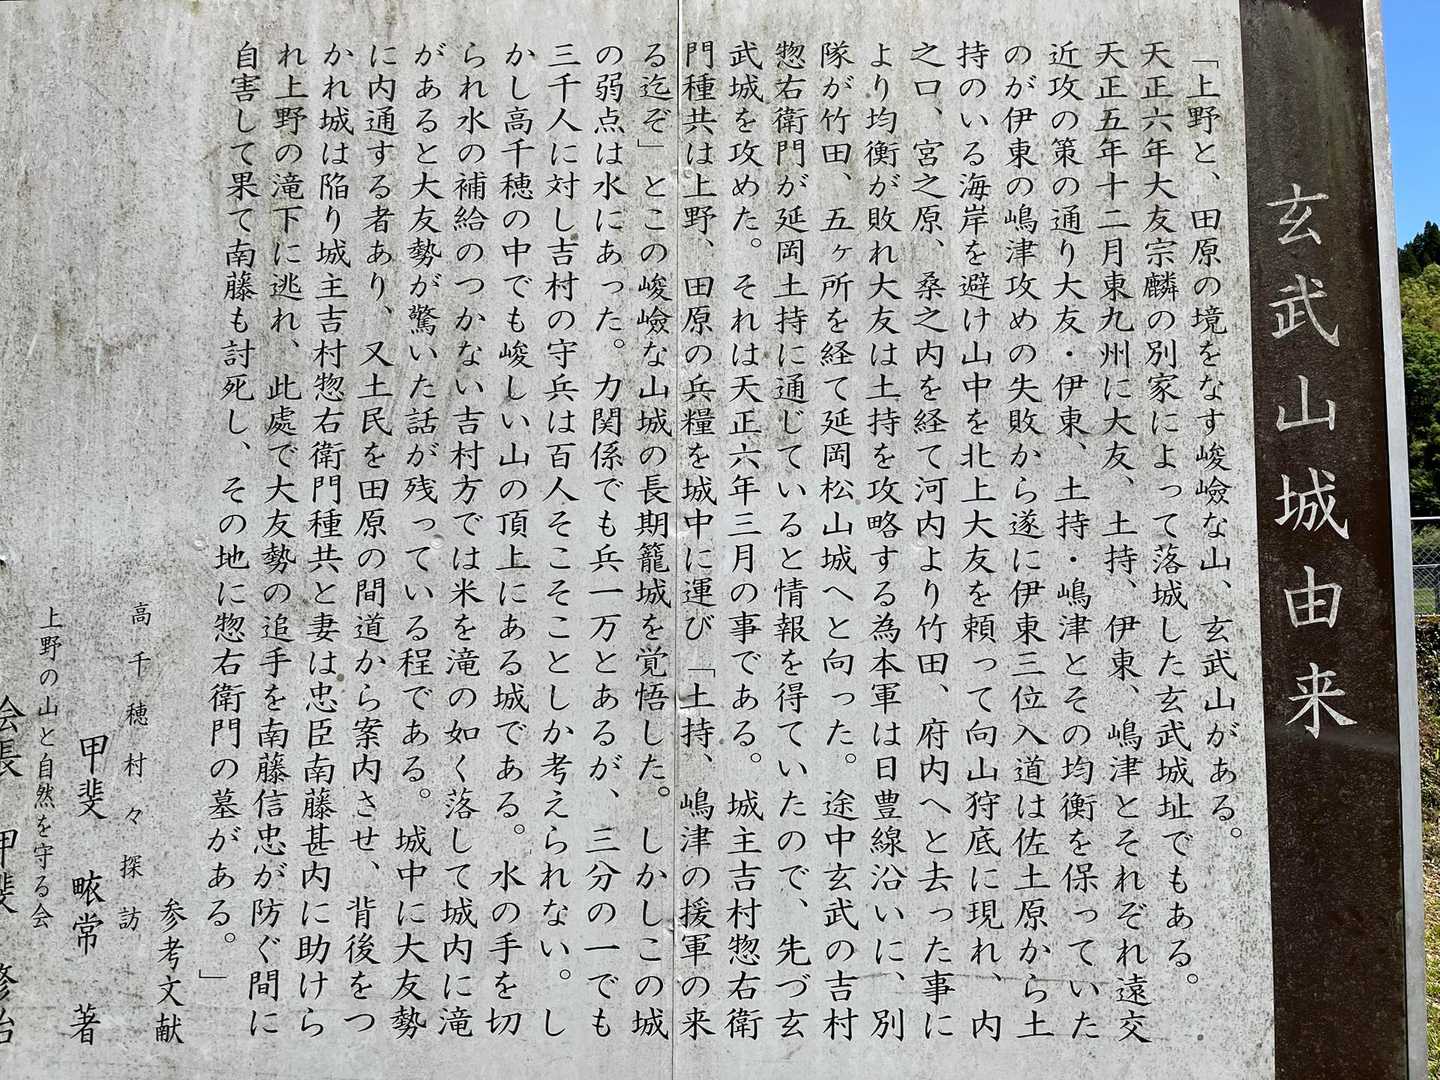 玄武山城由来
「上野と、田原の境をなす峻嶮な山、玄武山がある。
天正六年大友宗麟の別家によって落城した玄武城址でもある。
天正五年十二月東九州に大友、土持、伊東、嶋津とそれぞれ遠交
近攻の策の通り大友・伊東、土持・嶋津とその均衡を保っていた
のが伊東の嶋津攻めの失敗から遂に伊東三位入道は佐土原から土
持のいる海岸を避け山中を北上大友を頼って向山狩底に現れ、内
之口、宮之原、桑之内を経て河内より竹田、府内へと去った事に
より均衡が敗れ大友は土持を攻略する為本軍は日豊線沿いに、別
隊が竹田、五ヶ所を経て延岡松山城へと向った。途中玄武の吉村
惣右衛門が延岡土持に通じていると情報を得ていたので、先づ玄
武城を攻めた。それは天正六年三月の事である。城主吉村惣右衛
門種共は上野、田原の兵糧を城中に運び「土持、嶋津の援軍の来
る迄ぞ」とこの峻嶮な山城の長期籠城を覚悟した。しかしこの城
の弱点は水にあった。力関係でも兵一万とあるが、三分の一でも
三千人に対し吉村の守兵は百人そこそことしか考えられない。し
かし高千穂の中でも峻しい山の頂上にある城である。水の手を切
られ水の補給のつかない吉村方では米を滝の如く落して城内に滝
があると大友勢が驚いた話が残っている程である。城中に大友勢
に内通する者あり、又土民を田原の間道から案内させ、背後をつ
かれ城は陥り城主吉村惣右衛門種共と妻は忠臣南藤甚内に助けら
れ上野の滝下に逃れ、此處で大友勢の追手を南藤信忠が防ぐ間に
自害して果て南藤も討死し、その地に惣右衛門の墓がある。」
参考文献
高千穂村々探訪
甲斐 畩常 著
上野の山と自然を守る会
会長 甲斐 修治